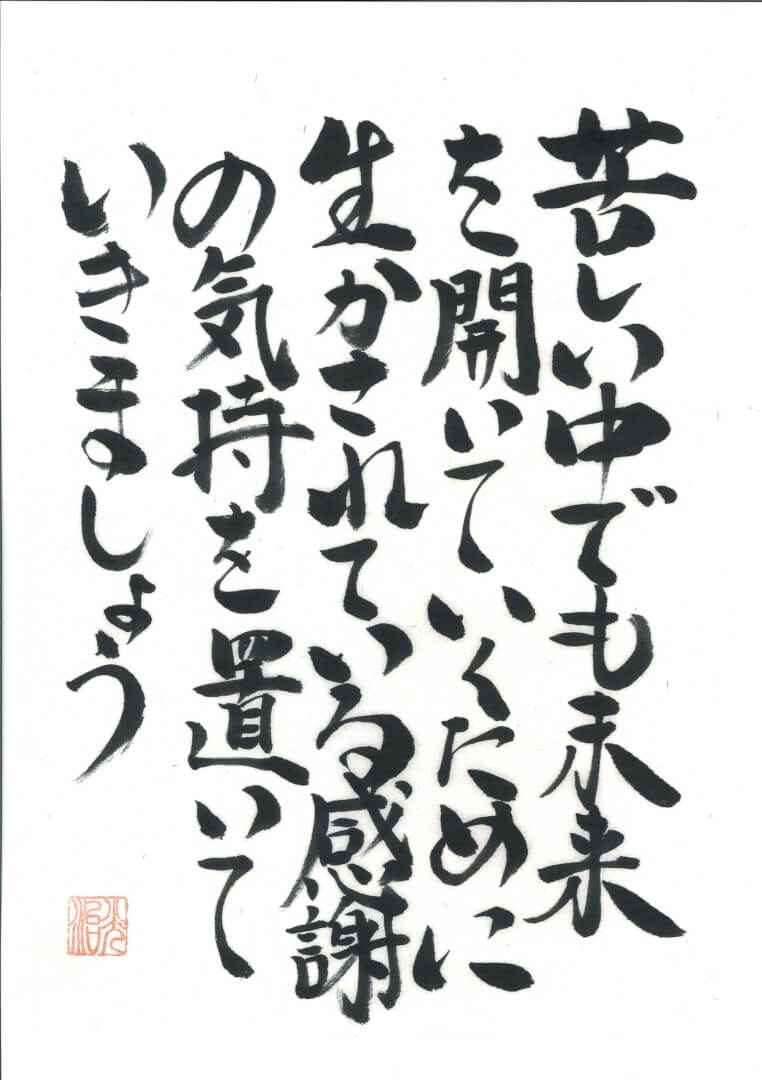 苦しい中でも未来
を開いていくために
生かされている感謝
の気持を置いて
いきましょう